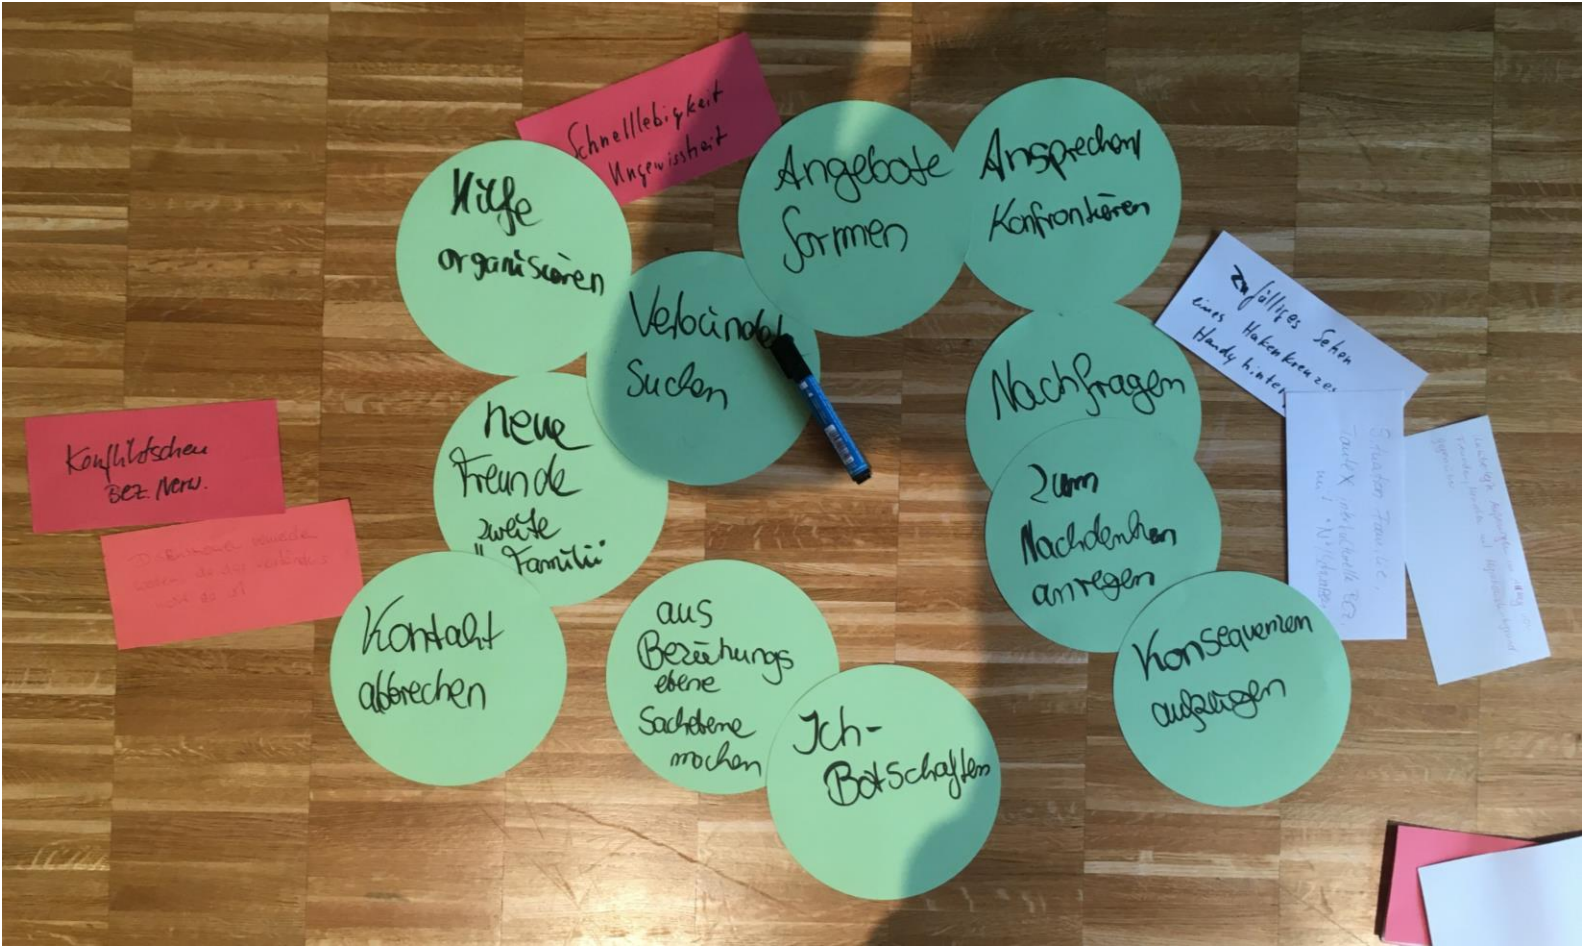 Schnelllebigkeit
Ungewissheit
Hilfe
organisieren
Angebote
formen
Ansprechen/
Konfrontieren
Verbündete
Suchen
Nachfragen
zufälliges Sehen
eines Hakenkreuzes
Handy hinter
neue
Freunde
zweite
"Familie"
Konfliktscheu
Bez. Nerv.
Zum
Nachdenken
anregen
Situation Familie,
interkulturelle Bez.
Kontakt
abbrechen
aus
Beziehungs
ebene
Sachebene
machen
Ich-
Botschaften
Konsequenzen
aufzeigen